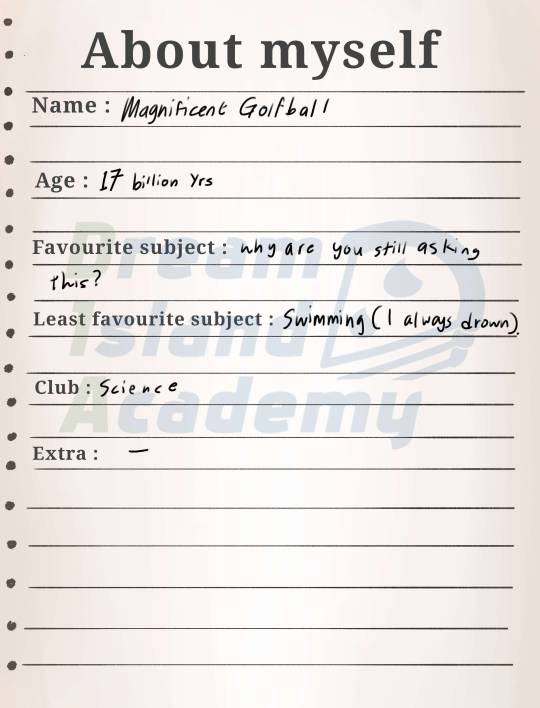 About myself
Name : Magnificent Golfball
Age : 17 billion Yrs
Favourite subject : why are you still asking
this?
Least favourite subject : Swimming (I always drown).
Club : Science
Extra : —
Dream
Island
Academy